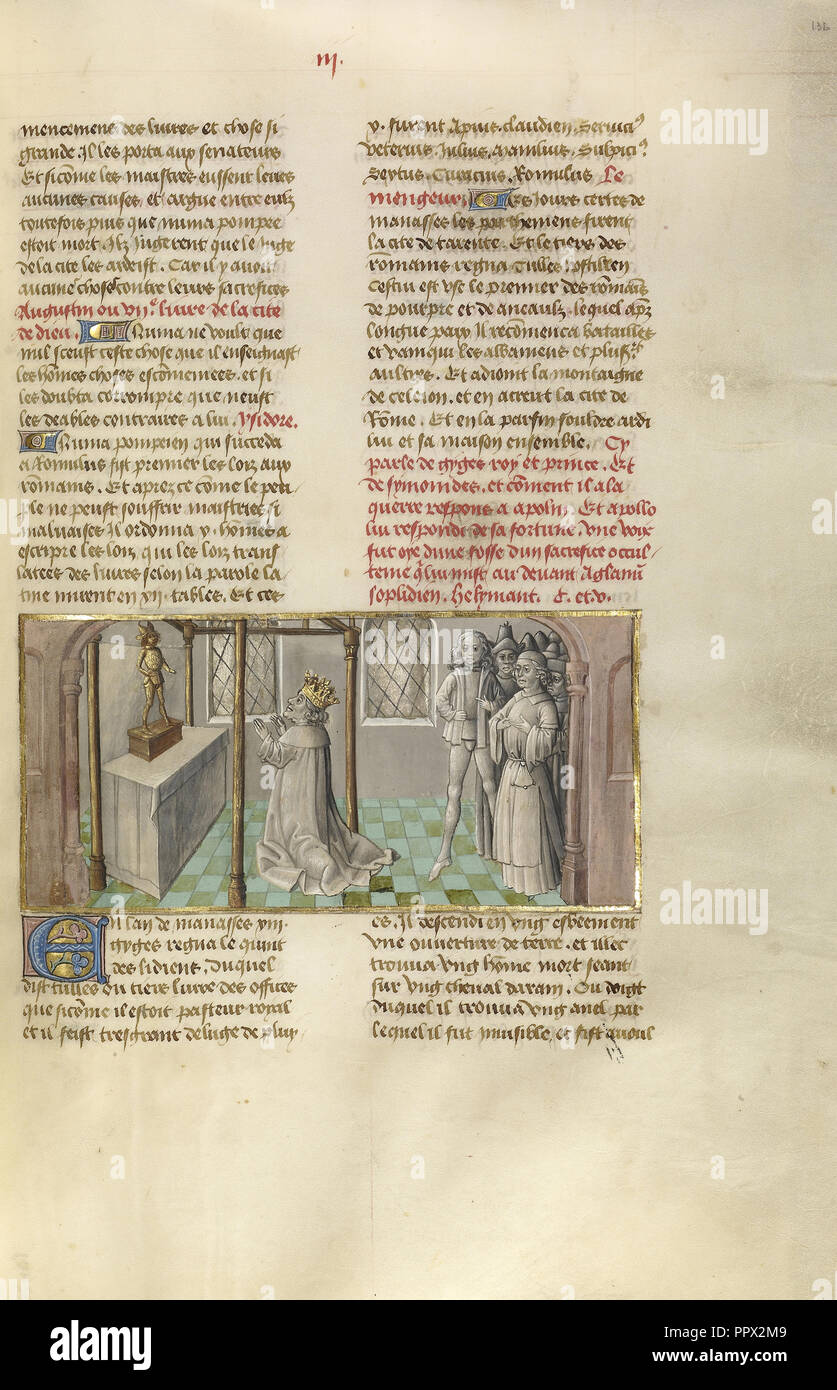 132
iii.
mencement des livres et chose si
grande. Il les porta aux senateurs
Et sicome les maistres eussent leues
aucunes causes, et argue entre eulx
toutefois puis que numa pompee
estoit mort. Ilz Jugerent que le Juge
de la cite les ardist. Car il y avoit
aucune chose contre leurs sacrefices
Augustin ou vii.e livre de la cite
de dieu. Numa ne voult que
nul sceust ceste chose que il enseignast
les hommes choses escomenees. et si
les doubta corrompre que neust
les deables contraires a lui. Ysidore.
Numa pompeien qui succeda
a Romulus fist premier les loix aux
romains. Et aprez ce come le peu
ple ne peust souffrir maistries si
malvaises Il ordonna .x. homes a
escripre les loix, qui les loix trans
latees des livres selon la parole la
tine mirent en xii. tables. Et ces
x. furent Apius. claudien. Servici9
Veterius. Julius. Manilius. Sulpici9.
Sextus. Curacius. Romulus Le
mengeur. Es jours certes de
manasses les parthemiens firent
la cite de tarente. Et le tiers des
Romains regna Tulles hostilien
Cestui est use le premier des romais
de pourpre et de aneaulx. lequel apz
longue paix Il recomenca batailles
et vainqui les albaniens et plusrs
aultres. Et adiont la montaigne
de celeion. et en acreut la cite de
Rome. Et en la parfin fouldre ardi
lui et sa maison ensemble. Cy
parle de gyges roy et prince. Et
de symonides. et coment il ala
querre respons a apolin. Et apollo
lui respondi de sa fortune. Une voix
fut oye dune fosse dun sacrefice occul-
teme q lui mist au devant Aglanu
soplidien. helymant. C. et.v.
En lan de manasses xiii.
gyges regna le quint
des lidiens. Duquel
dist tulles ou tiers livre des offices
que sicome il estoit pasteur royal
et il feist tresgrant deluge de pluy
es. Il descendi en ung esbeement
une ouverture de terre. et illec
trouva ung home mort seant
sur ung cheval darain. Ou doigt
duquel il trouva ung anel par
lequel il fut invisible, et fist avoul
a
alamy
a
alamy
alamy
Image ID: PPX2M9
www.alamy.com